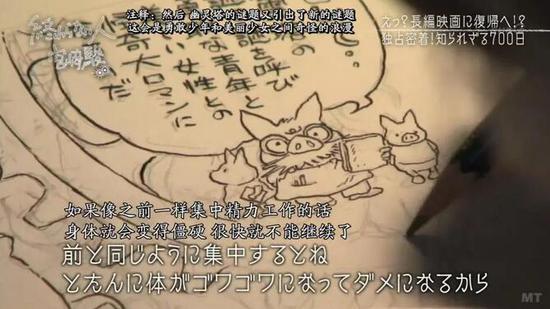 注释：然后 幽灵塔的谜题以引出了新的谜题
这会是勇敢少年和美丽少女之间奇怪的浪漫
終わらない人
宮崎駿
えっ？長編映画に復帰へ！？
独占密着！知られざる700日
を呼び
な青年と
い女性との
奇大ロマンに
だ
如果像之前一样集中精力工作的话
身体就会变得僵硬 很快就不能继续了
前と同じように集中するとね
とたんに体がゴワゴワになってダメになるから
MT